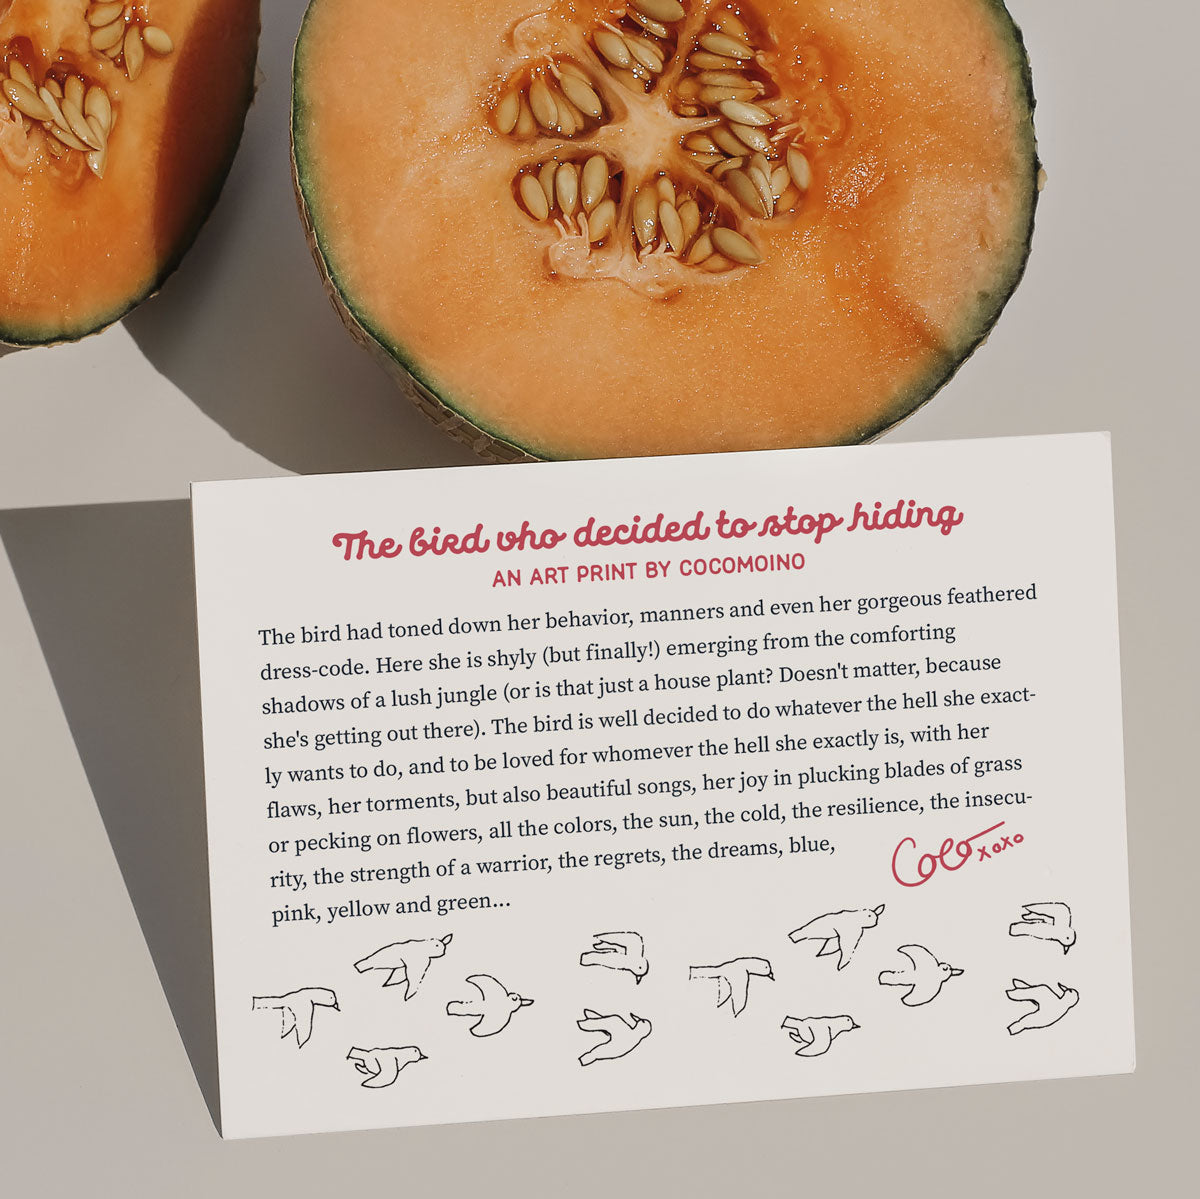 The bird who decided to stop hiding
AN ART PRINT BY COCOMOINO
The bird had toned down her behavior, manners and even her gorgeous feathered
dress-code. Here she is shyly (but finally!) emerging from the comforting
shadows of a lush jungle (or is that just a house plant? Doesn't matter, because
she's getting out there). The bird is well decided to do whatever the hell she exact-
ly wants to do, and to be loved for whomever the hell she exactly is, with her
flaws, her torments, but also beautiful songs, her joy in plucking blades of grass
or pecking on flowers, all the colors, the sun, the cold, the resilience, the insecu-
rity, the strength of a warrior, the regrets, the dreams, blue,
pink, yellow and green...
Coco xoxo